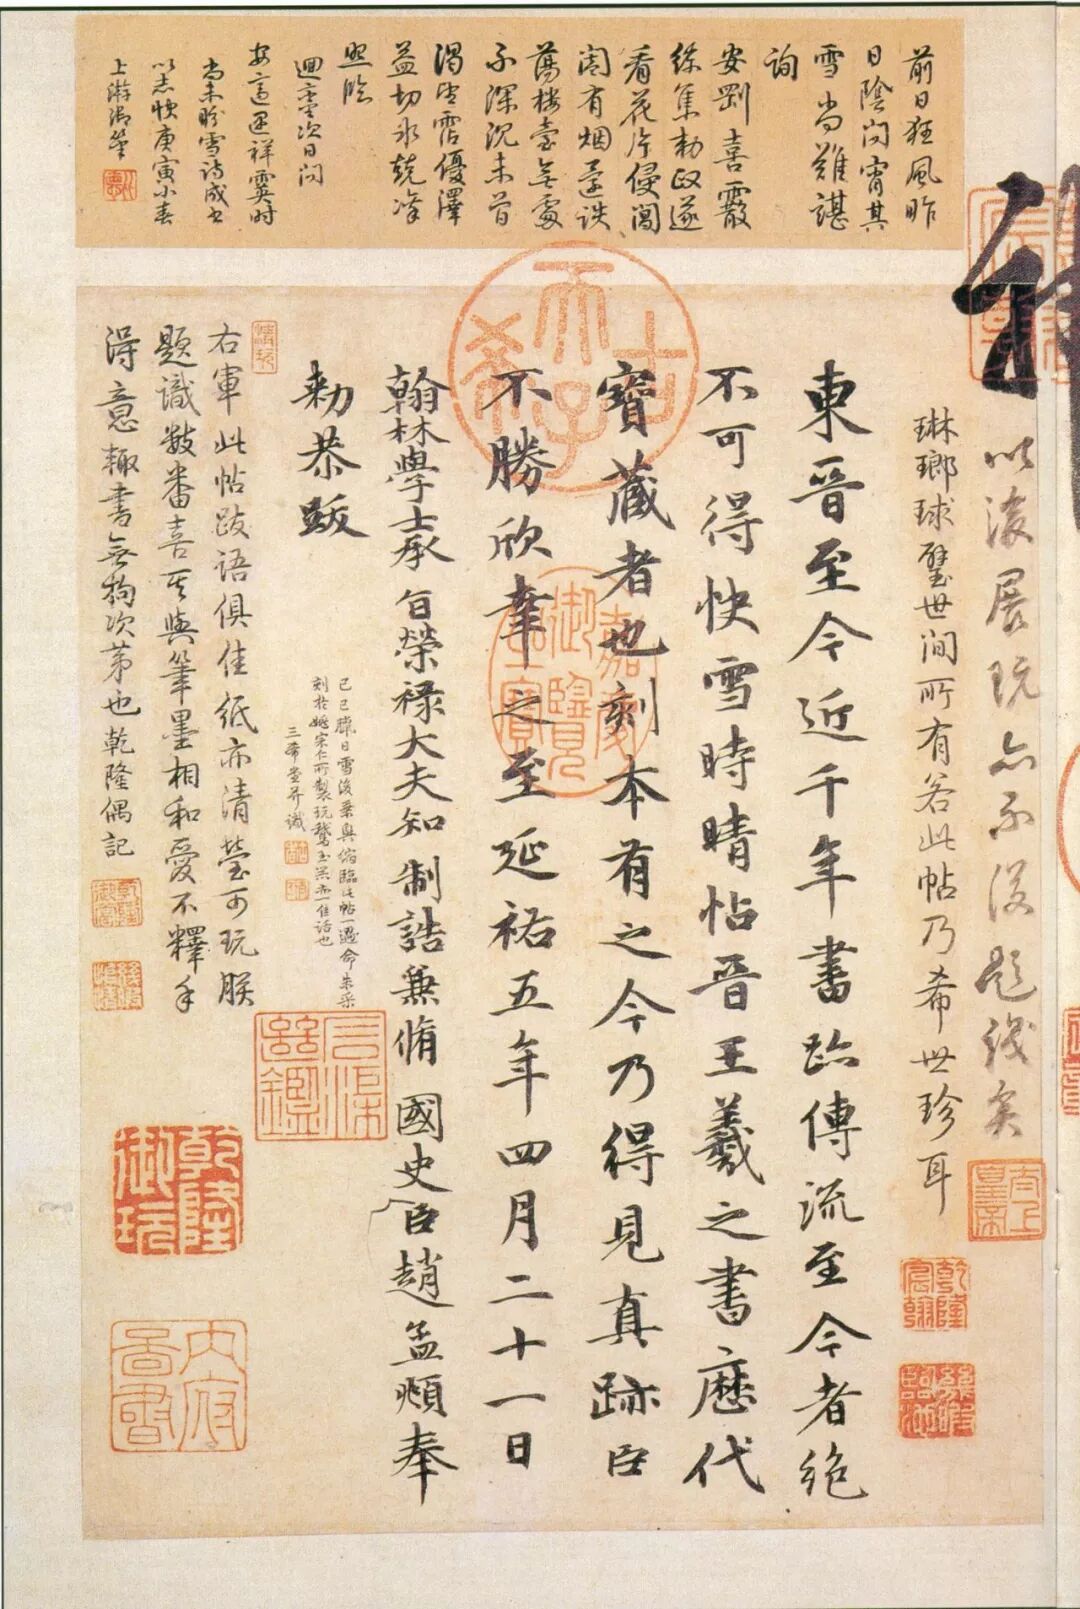 前日狂風昨
日陰向宵其
雪尚難諶
詢
安罽喜霰
綜集勅政遂
看花片侵閣
閤有烟
蕩樓臺無處
不深沉未曾
渴望霑優澤
益切冰兢凜
照臨
迴鑾次日向
安適逞祥霙時
尚未盼雪詩成書
以志快庚寅小春
上澣御筆
以後展玩亦不復題識矣
琳瑯球璧世間所有若此帖乃希世珍耳
東晉至今近千年書跡傳流至今者絶
不可得快雪時晴帖晉王羲之書歷代
寶藏者也刻本有之今乃得見真跡臣
不勝欣幸之至延祐五年四月二十一日
翰林學士承旨榮祿大夫知制誥兼脩國史臣趙孟頫奉
勅恭跋
己巳臘日雪後乘輿縮臨此帖一過命朱采
刻於姚宋仁所製玩鵞玉器亦一佳話也
三希堂并識
右軍此帖跋語俱佳紙亦清瑩可玩朕
題識數番喜其與筆墨相和愛不釋手
得意輒書無拘次第也乾隆偶記
古希天子
嘉慶御覽之寶
太上皇帝
乾隆宸翰
乾隆御玩
內府圖書